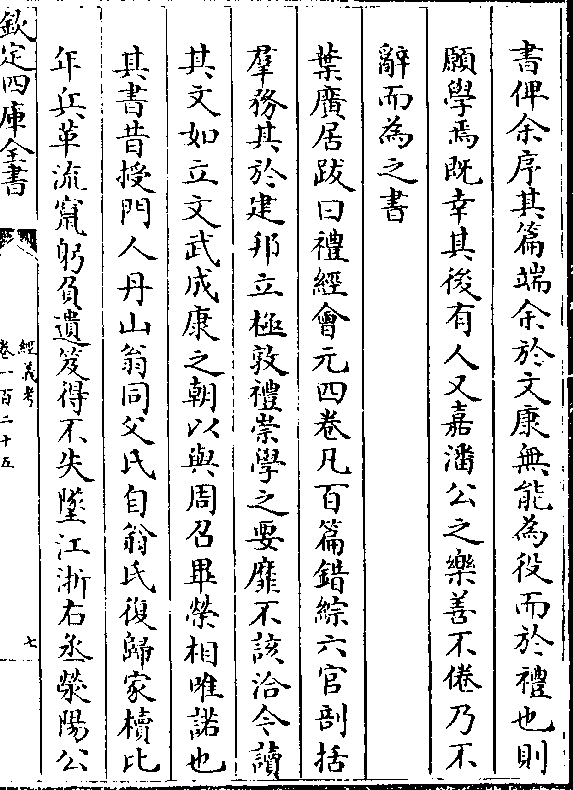 書俾余序其篇端余於文康無能為役而於禮也則
願學焉既幸其後有人又嘉潘公之樂善不倦乃不
辭而為之書
葉廣居跋曰禮經會元四卷凡百篇錯綜六官剖括
羣務其於建邦立極敦禮崇學之要靡不該洽今讀
其文如立文武成康之朝以與周召畢榮相唯諾也
其書昔授門人丹山翁同父氏自翁氏復歸家櫝比
年兵革流竄躬負遺笈得不失墜江浙右丞滎陽公
欽定四庫全書
經義考
卷一百二十五
七